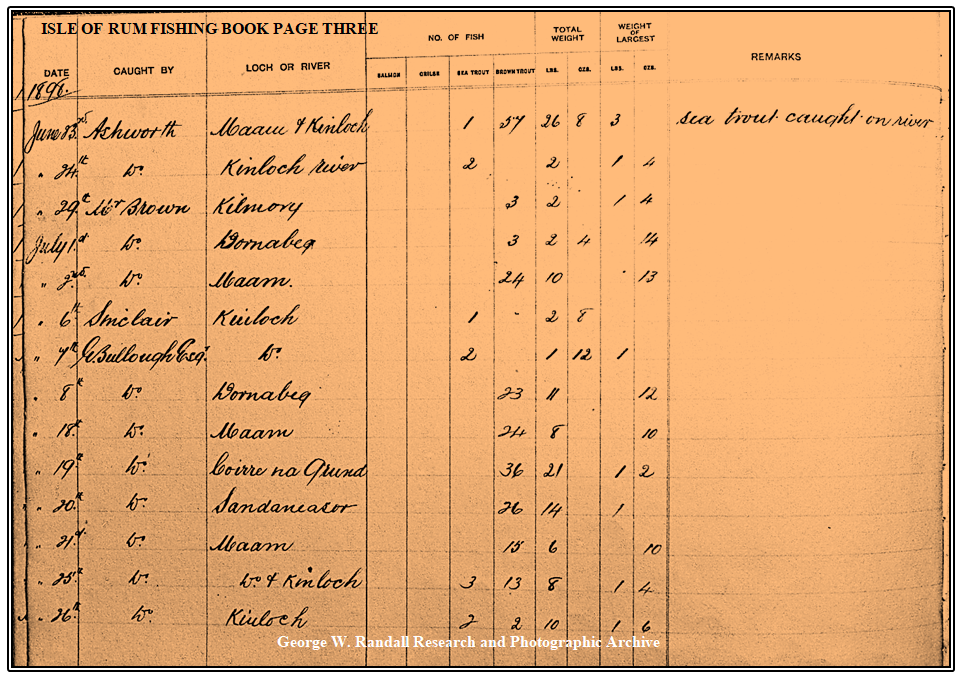 ISLE OF RUM FISHING BOOK PAGE THREE
DATE CAUGHT BY LOCH OR RIVER NO. OF FISH TOTAL WEIGHT WEIGHT OF LARGEST REMARKS
SALMON GRILSE SEA TROUT BROWN TROUT LBS. OZS. LBS. OZS.
1898.
June 23rd. Ashworth Maam & Kinloch 1 57 26 8 3 sea trout caught on river
" 24th Do. Kinloch river 2 2 1 4
" 29th Mr Brown Kilmory 3 2 1 4
July 1st Do. Dornabeg 3 2 4 14
" 2nd. Do Maam. 24 10 13
" 6th Sinclair Kinloch 1 2 8
" 7th G. Bullough Esqr Do. 2 1 12 1
" 8th Do. Dornabeg 23 11 12
" 18th Do. Maam 24 8 10
" 19th Do. Coirre na Grund 36 21 1 2
" 20th Do. Sandaneasor 26 14 1
" 21st. Do. Maam 15 6 10
" 25th Do. Do & Kinloch 3 13 8 1 4
" 26th Do. Kinloch 2 2 10 1 6
George W. Randall Research and Photographic Archive